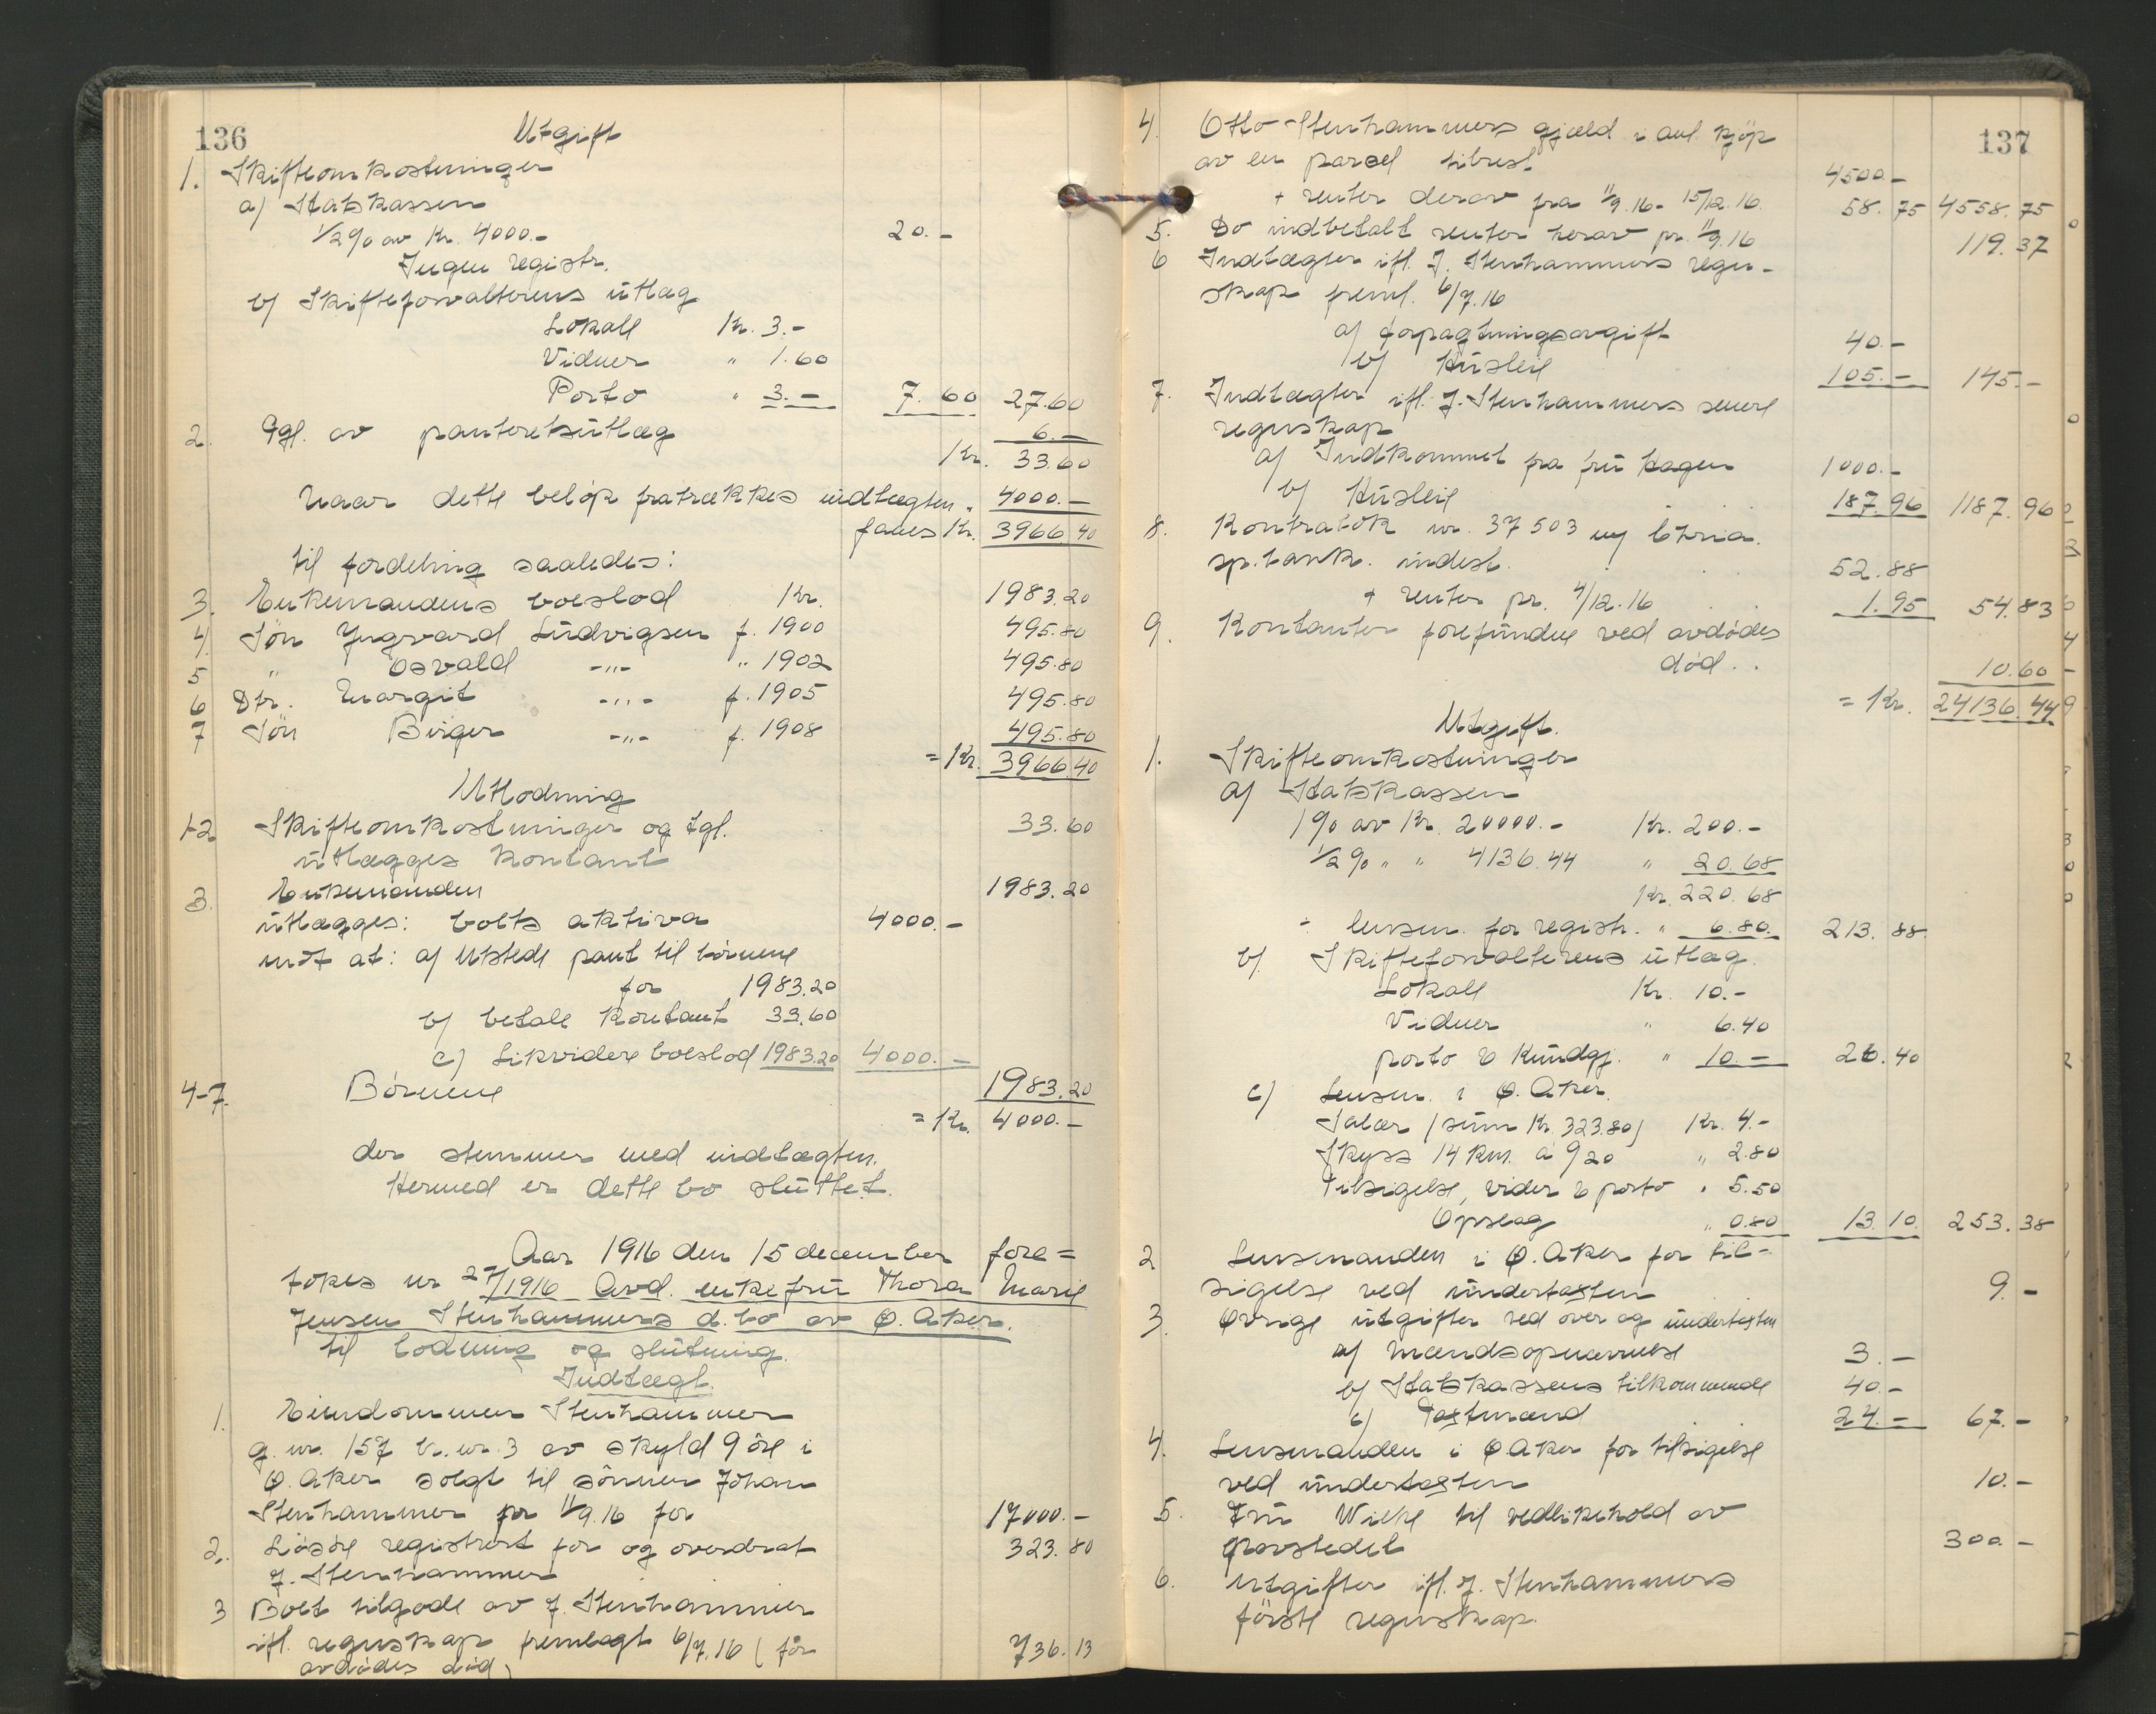 136
Utgift
1. Skifteomkostninger
a) Statskassen
1/2% av Kr. 4000.- 20.-
Ingen registr.
b) Skifteforvalterens utlæg
Lokale Kr. 3.-
Vidner " 1.60
Porto " 3.- 7.60 27.60
2. Tgl. av panteretsutlæg 6.-
Kr. 33.60
Naar dette beløp fratrækkes indtægten " 4000.-
faaes Kr. 3966.40
til fordeling saaledes:
3. Enkemandens boeslod Kr. 1983.20
4. Søn Yngvard Ludvigsen f. 1900 495.80
5 " Osvald -"- " 1902 495.80
6 Dtr. Margit -"- f. 1905 495.80
7 Søn Birger -"- f. 1908 495.80
= Kr. 3966.40
Utlodning
1-2 Skifteomkostninger og tgl. 33.60
utlægges kontant
3. Enkemanden 1983.20
utlægges: boets aktiva 4000.-
mot at: a) utstede pant til børnene
for 1983.20
b) betale kontant 33.60
c) Likvidere boeslod 1983.20 4000.-
4-7. Børnene 1983.20
= Kr. 4000.-
der stemmer med indtægten.
Hermed er dette bo sluttet.
Aar 1916 den 15 december fore=
tokes nr 27/1916 Avd. enkefru Thora Marie
Jensen Stenhammers d.bo av Ø. Aker.
til lodning og slutning.
Indtægt.
1. Eiendommen Stenhammer
g. nr. 157 br. nr. 3 av skyld 9 øre i
Ø. Aker solgt til sønnen Johan
Stenhammer pr 11/9.16 for 17000.-
2. Løsøre registrert for og overdrat
J. Stenhammer 323.80
3 Boet tilgode av J. Stenhammer
ifl. regnskap fremlagt 6/7.16 (før
avdødes død) 736.13
137
4. Otto Stenhammers gjæld i anl. kjøp
av en parcel tilrest. 4500.-
+ renter derav fra 11/9.16 - 15/12.16. 58.75 4558.75
5. Do indbetalt renter herav pr. 11/9.16 119.37
6 Indtægter ifl. J. Stenhammers regn-
skap freml. 6/7.16
a) forpagtningsavgift 40.-
b) Husleie 105.- 145.-
7. Indtægter ifl. J. Stenhammers senere
regnskap
a) Indkommet fra fru Hagen 1000.-
b) Husleie 187.96 1187.96
8. Kontrabok nr. 37503 m/ Chria.
sp.bank. indest. 52.88
+ renter pr. 4/12.16 1.95 54.83
9. Kontanter forefundne ved avdødes
død.. 10.60
= Kr. 24136.44
Utgift.
1. Skifteomkostninger
a) Statskassen
1% av Kr. 20000.- Kr. 200.-
1/2% " " 4136.44 " 20.68
Kr. 220.68
÷ lensm. for registr. " 6.80. 213.88.
b). Skifteforvalterens utlæg.
Lokale Kr. 10.-
Vidner " 6.40
porto & kundgj. " 10.- 26.40
c) Lensm. i Ø. Aker.
Salær (sum Kr. 323.80) Kr. 4.-
Skyss 14 km. a 0,20 " 2.80
Tilsigelse, vidner & porto " 5.50
Opslag " 0.80 13.10. 253.38
2 Lensmanden i Ø. Aker for til-
sigelse ved undertaksten 9.-
3. Øvrige utgifter ved over og undertaksten
a) Mændsopnævnelse 3.-
b) Statskassens tilkommende 40.-
c) Takstmænd 24.- 67.-
4. Lensmanden i Ø. Aker for tilsigelse
ved undertaksten 10.-
5. Fru til vedlikehold av
gravstedet 300.-
6. Utgifter ifl. J. Stenhammers
første regnskap.